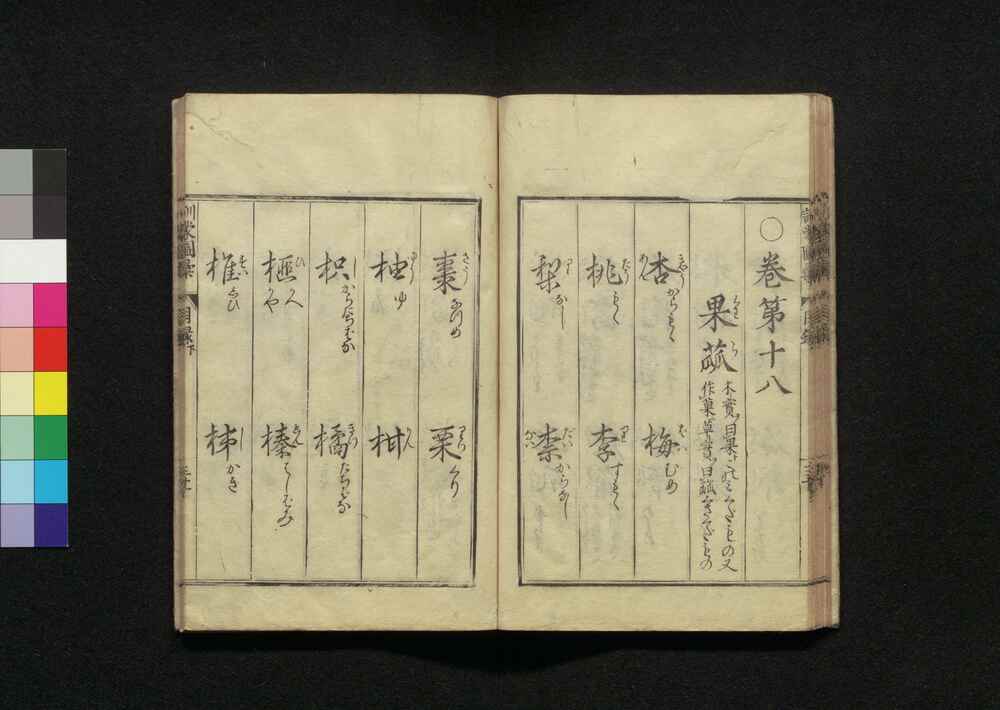 ○巻第十八
果蓏
木實曰果
作菓草實曰蓏
杏 からもゝ
梅 むめ
桃 もゝ
李 すもゝ
梨 なし
柰 からなし
棗 なつめ
栗 くり
柚 ゆ
柑
枳 からたちばな
橘 たちばな
榧 かや
榛 はしばみ
椎 しひ
柹 かき
目録下